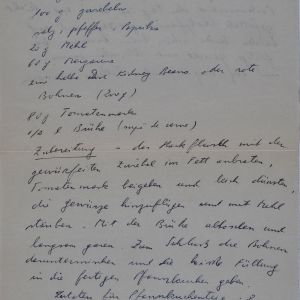 100 g Zwiebeln
Salz, Pfeffer, Paprika
20 g Mehl
80 g Margarine
eine halbe Dose Kidney Beans oder rote
Bohnen (200 g)
80 g Tomatenmark
1/8 l Brühe
Zubereitung - das Hackfleisch mit den
gewürfelten Zwiebel im Fett anbraten,
Tomatenmark beigeben und leicht dünsten,
die Gewürze hinzufügen und mit Mehl
stäuben. Mit der Brühe ablöschen und
langsam garen. Zum Schluß die Bohnen
daruntermischen und die heiße Füllung
in die fertigen Pfannkuchen geben.
Zutaten für Pfannkuchenteig